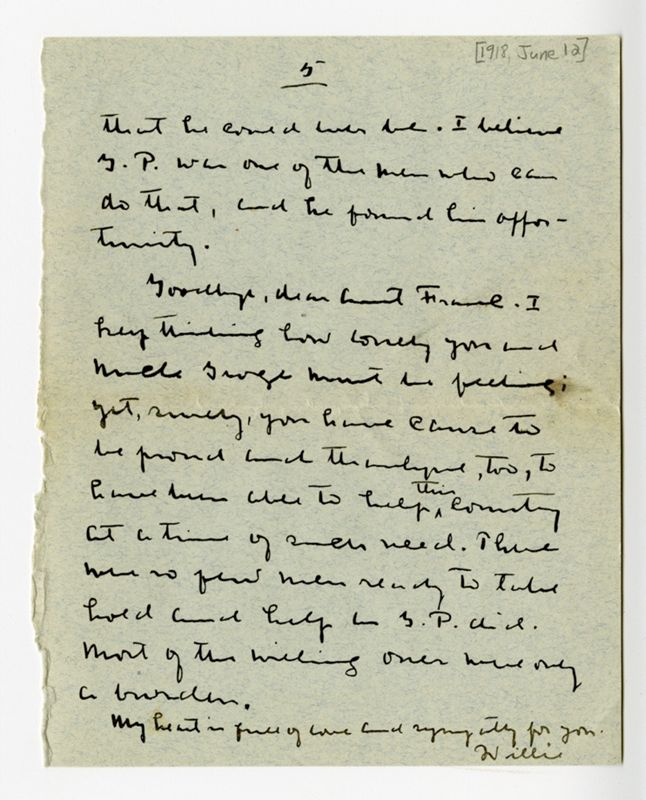 [1918, June 12]
5
that he could ever be. I believe
G. P. was one of the men who can
do that, and he found his oppor-
tunity.
Goodbye, dear Aunt Franc. I
keep thinking how lonely you and
Uncle George must be feeling;
yet, surely, you have cause to
be proud and thankful, too, to
have been able to help this country
at a time of such need. There
were so few men ready to take
hold and help as G. P. did.
Most of the willing ones were only
a burden.
My heart is full of love and sympathy for you.
Willie